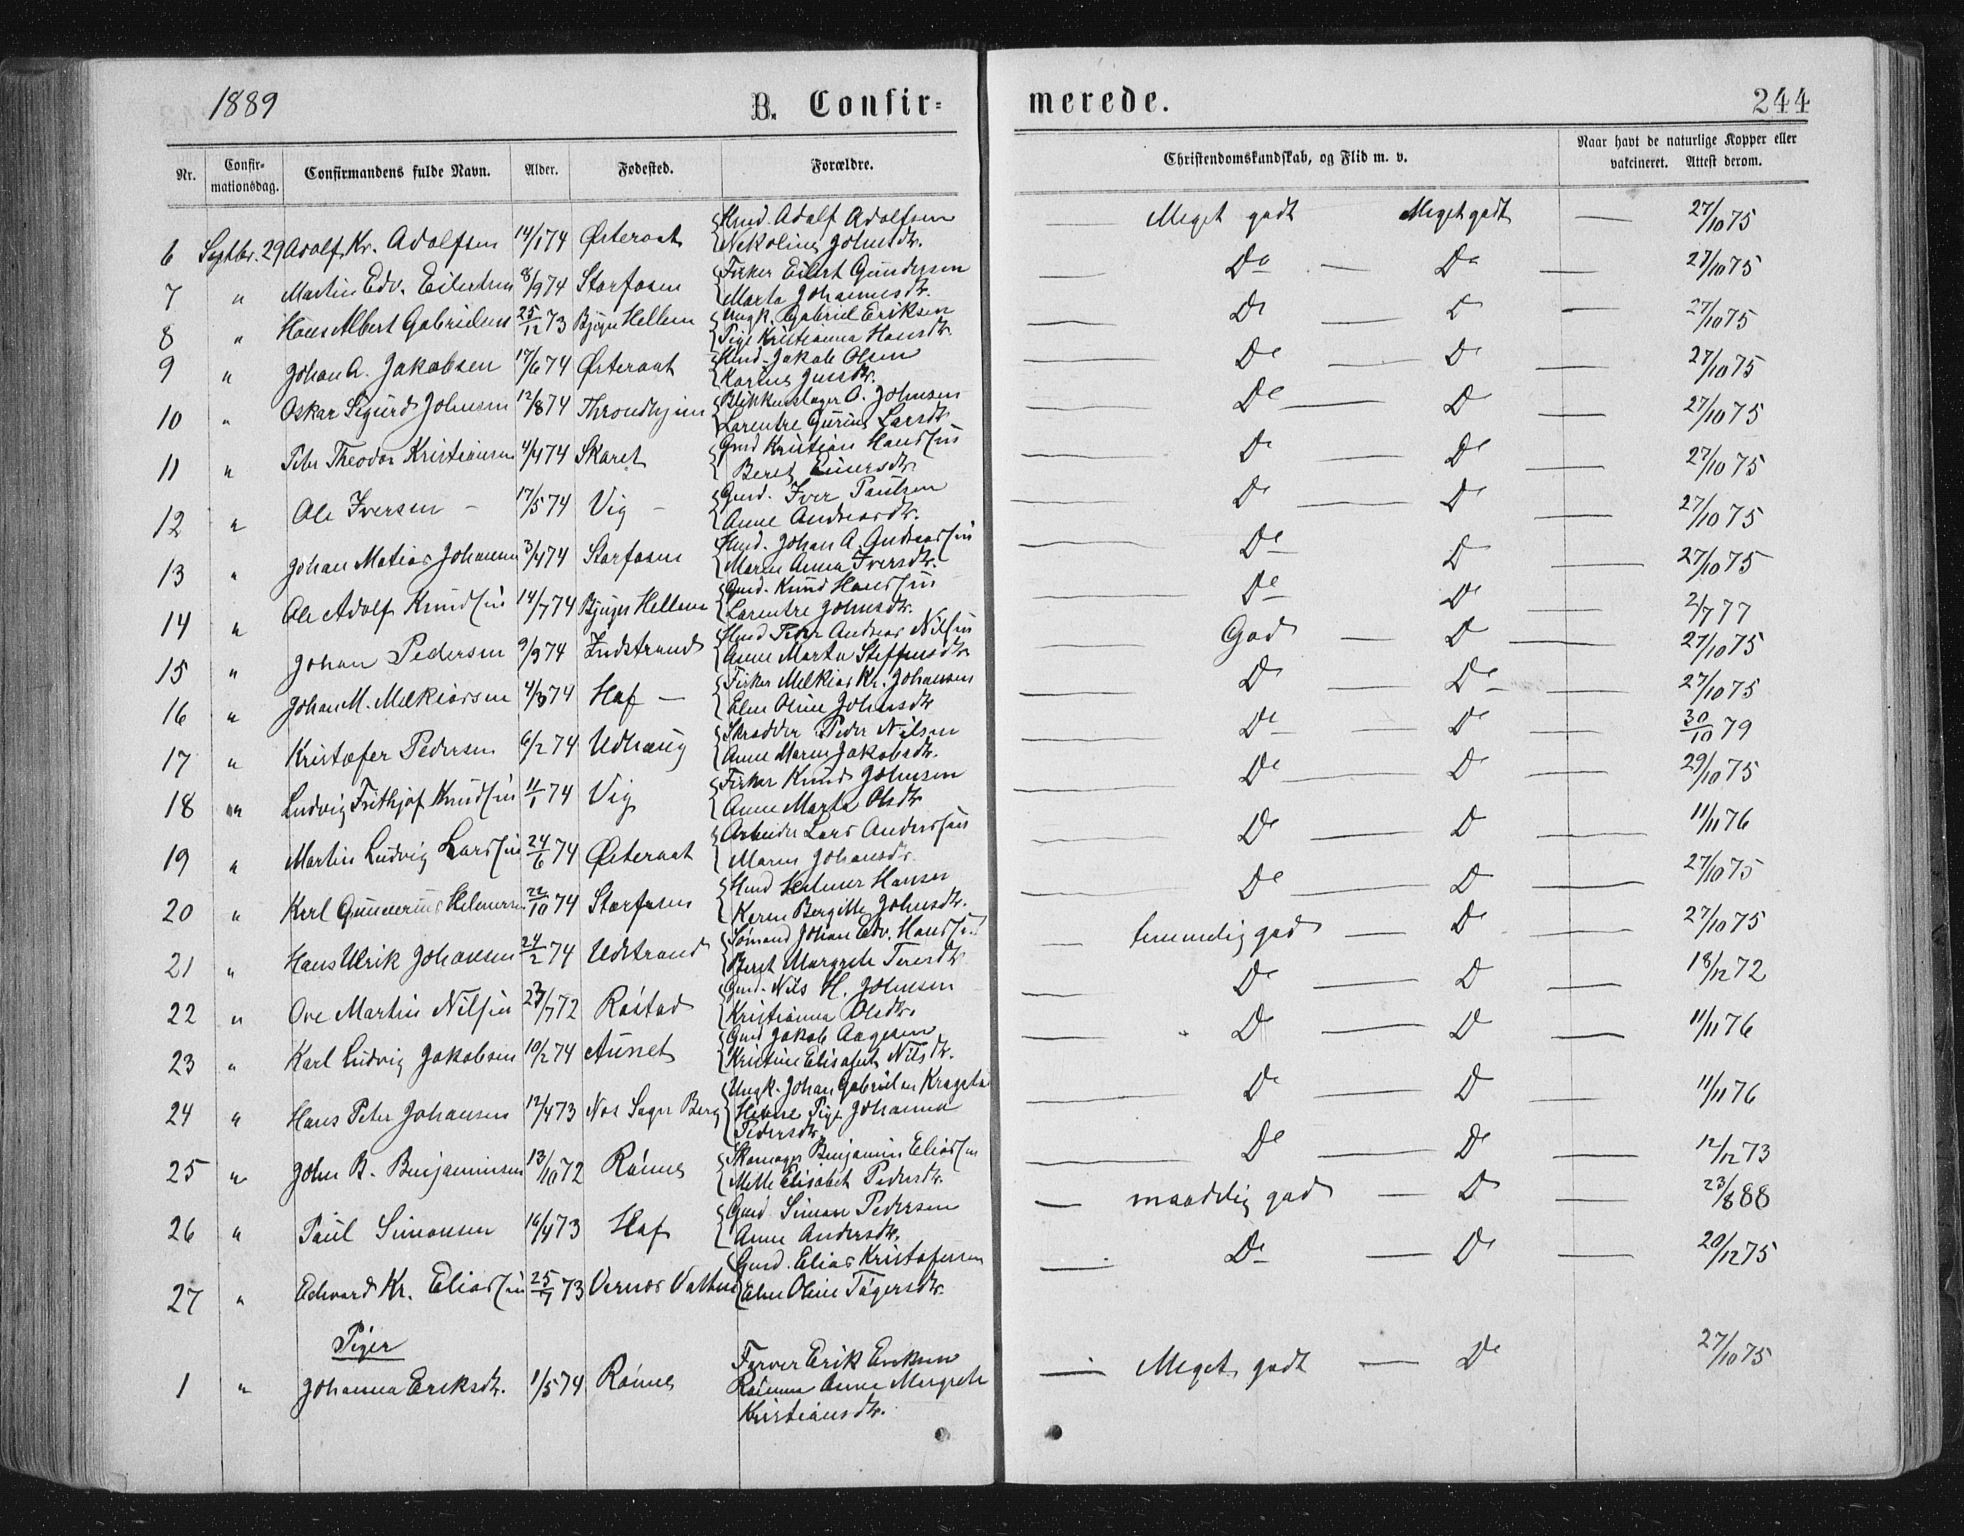 1889
B. Confir-
merede.
244
Nr.
Confir-
mationsdag.
Confirmandens fulde Navn.
Alder.
Fødested.
Forældre.
Christendomskundskab, og Flid m. v.
Naar havt de naturlige Kopper eller
vakcineret. Attest derom.
6 Septbr. 29 Adolf Kr. Adolfsen 14/1 74 Østeraat Hmd. Adolf Adolfsen Meget godt Meget godt 27/10 75
Johnsdtr.
7 " Martin Edv. Eilertsen 8/9 74 Storfosen Fisker Eilert Gundersen Do Do 27/10 75
Marta Johannesdtr.
8 " Hans Albert Gabrielsen 25/12 73 Bjugn Hellem Ungk. Gabriel Eriksen Do D 27/10 75
Pige Kristianna Hansdtr.
9 " Johan A. Jakobsen 17/6 74 Østeraat Hmd. Jakob Olsen Do Do 27/10 75
10 " Oskar Sigurd Johnsen 12/8 74 Throndhjem Blikkenslager O. Johnsen Do D 27/10 75
Larsdtr.
11 " Peter Theodor Kristiansen 4/4 74 Skaret Gmd Kristian Hansen D Do 27/10 75
Beret
12 " Ole Iversen - 17/5 74 Vig - Gmd. Iver Paulsen D Do 27/10 75
Anne Andreasdtr.
13 " Johan Matias Johansen 3/4 74 Storfosen Hmd. Johan A. Andreassen Do D 27/10 75
Maren Anna Iversdtr.
14 " Ole Adolf Knudsen 14/7 74 Bjugn Hellem Gmd. Knud Hansen Do Do 2/7 77
Larentse Johnsdtr.
15 " Johan Pedersen 9/9 74 Indstrand Hmd Peter Andreas Nilsen God D 27/10 75
Anne Marta Steffensdtr.
16 " Johan M. Melkiorsen 4/3 74 Hof - Fisker Melkior Kr. Johansen D Do 27/10 75
Elen Oline Johnsdtr.
17 " Kristofer Pedersen 6/2 74 Udhaug Skrædder Peder Nilsen Do Do 30/10 79
Anne Maren Jakobsdtr.
18 " Ludvig Frithjof Knudsen 11/1 74 Vig Fisker Knud Johnsen Do Do 29/10 75
Anne Marta Olsdtr
19 " Martin Ludvig Larssen 24/6 74 Østeraat Arbeider Lars Anderssen Do D 11/11 76
Maren Johansdr.
20 " Karl Gunnerius Helmersen 22/10 74 Storfosen Hmd Helmer Hansen Do D 27/10 75
Karen Bergitte Johnsdtr.
21 " Hans Ulrik Johansen 24/2 74 Udstrand Sømand Johan Edv. Hanssen temmelig god Do 27/10 75
Beret Margrete
22 " Ove Martin Nilsen 27/7 72 Røstad Gmd. Nils H. Johnsen Do D 18/12 72
Kristianna Olsdtr.
23 " Karl Ludvig Jakobsen 10/2 74 Aunet Gmd Jakob Aagesen D D 11/11 76
Kristine Elisabet Nilsdtr.
24 " Hans Peter Johansen 12/4 73 Nes Sogn Berg Ungk. Johan Gabrielsen D D 11/11 76
Pige Johanna
Pedersdtr.
25 " John B. Benjaminsen 13/10 72 Rønnes Skomager Benjamin Eliassen Do Do 12/12 73
Mette Elisabet Pedersdtr.
26 " Paul Simonsen 16/4 73 Hof Gmd Simon Pedersen maadelig god D 23/8 88
Anne Andersdtr.
27 " Edvard Kr. Eliassen 25/7 73 Vernes Gmd. Elias Kristofersen Do Do 20/12 75
Elen Oline Tøgersdtr.
Piger
1 " Johanna Eriksdtr. 1/5 74 Rønnes Farver Erik Eriksen Meget godt Do 27/10 75
Anne Margrete
Kristiansdtr.